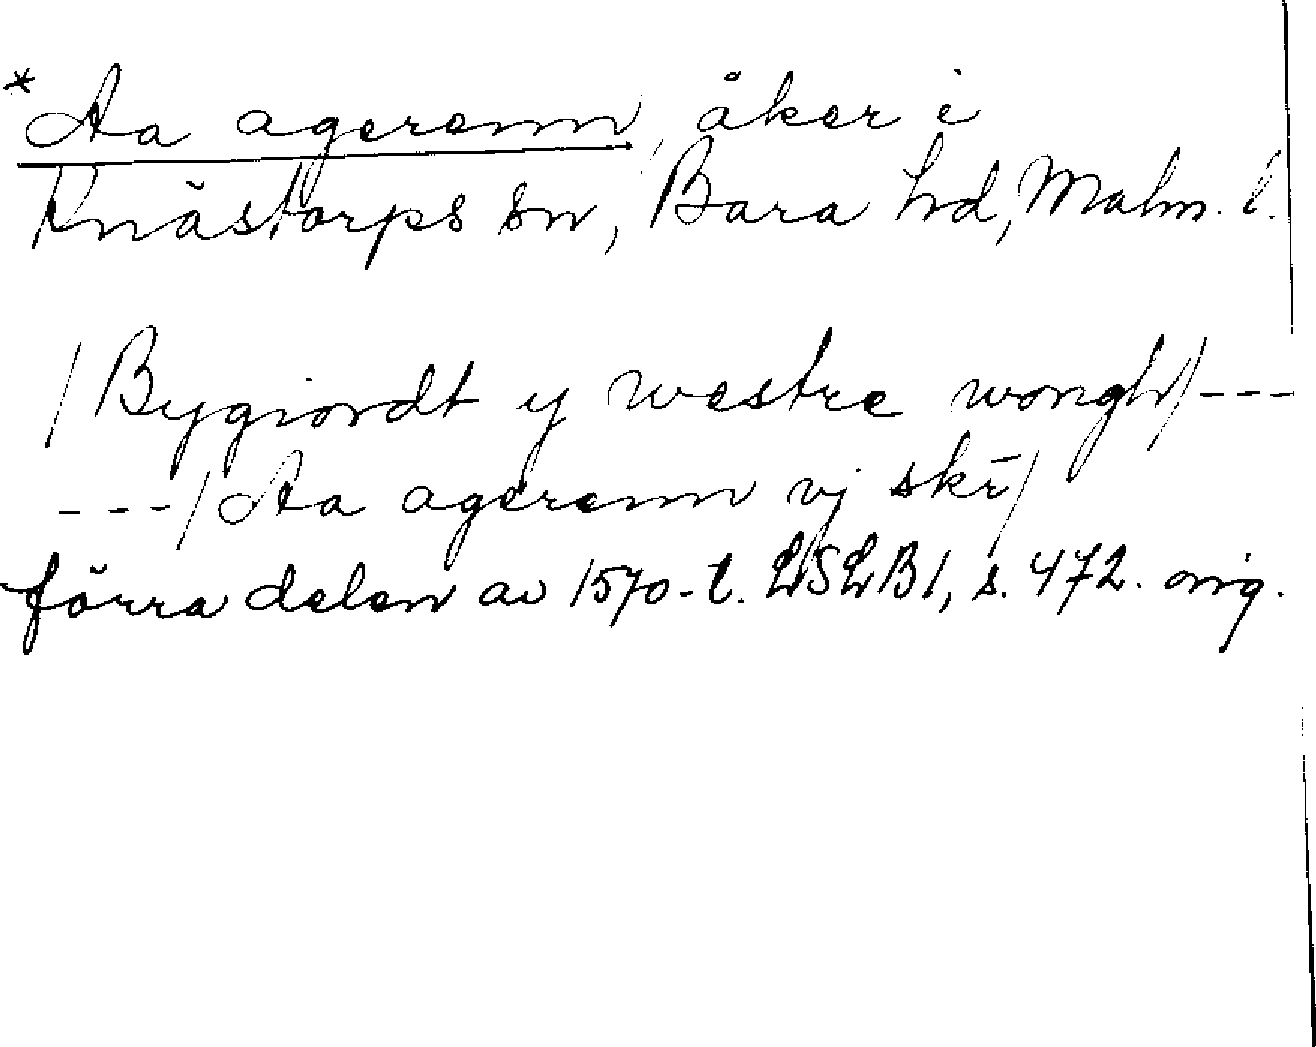 *Aa agerenn, åker i
Knästorps sn, Bara hd, Malm. l.
/Bygiordt y westre wongh/---
---/Aa agerenn vj skr̄/
förra delen av 1570-t. LSLB1, s. 472. orig.